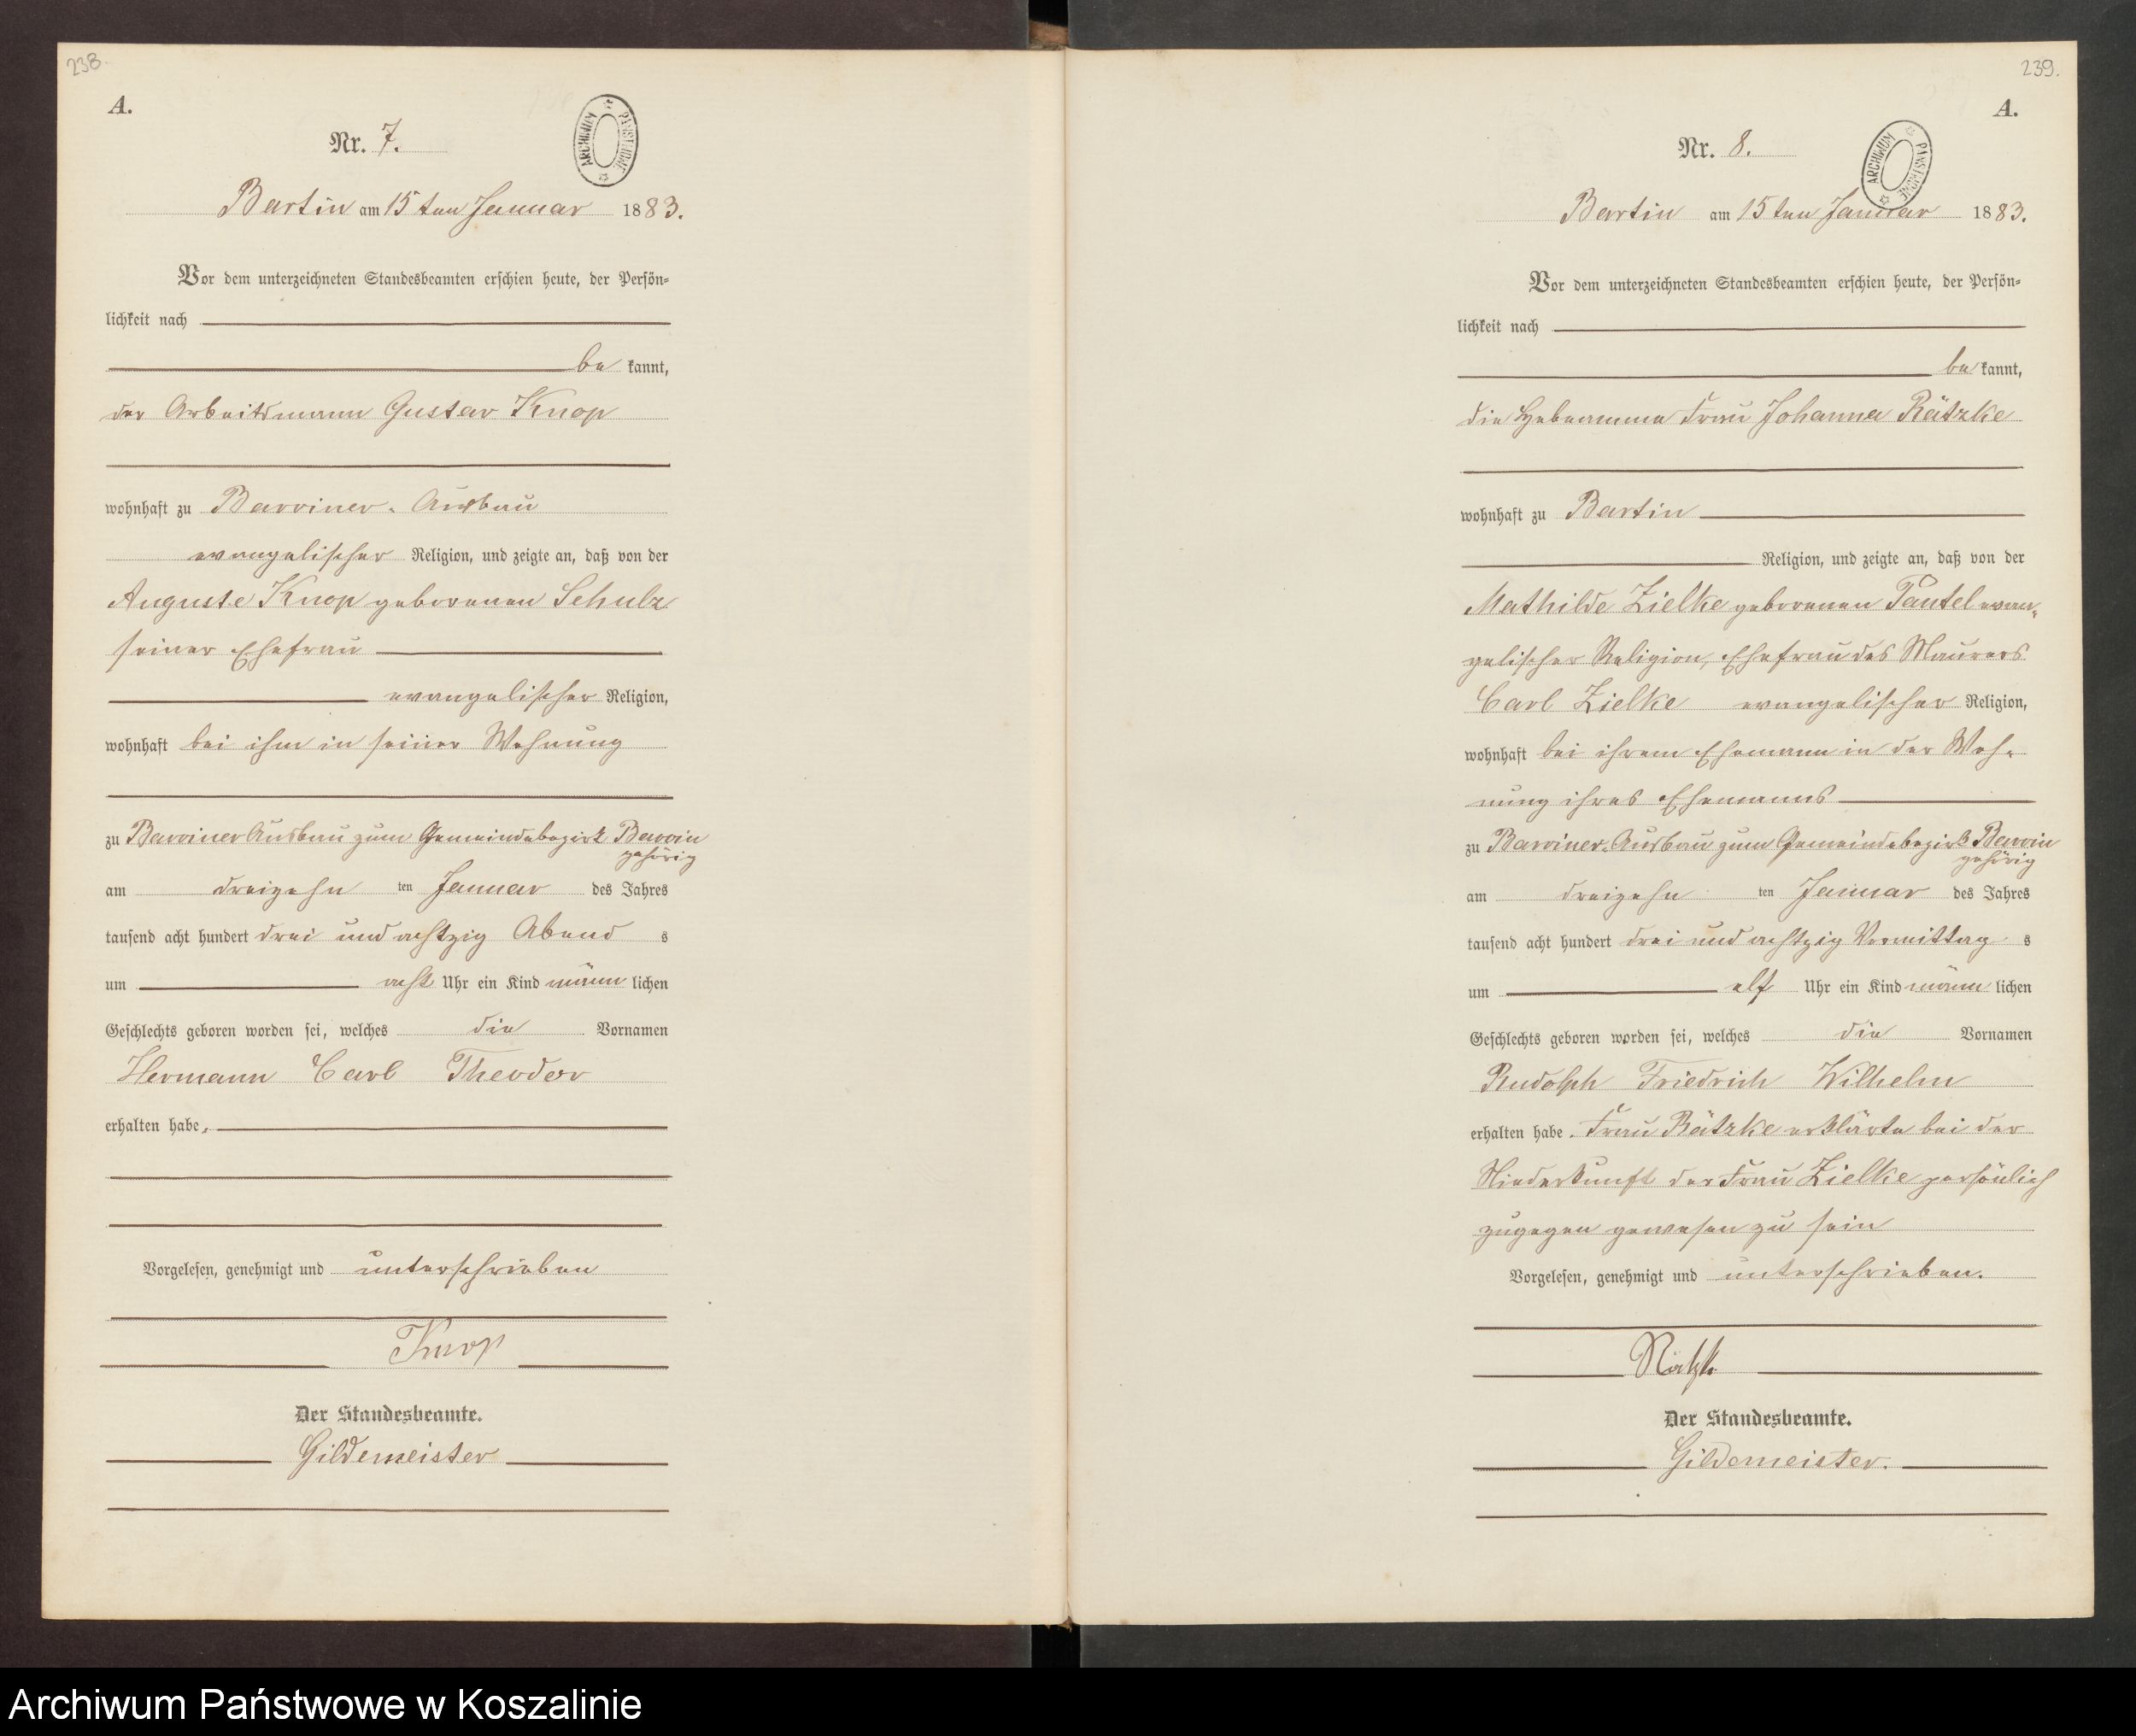 238.
A.
Nr. 7.
ARCHIWUM PAŃSTWOWE
Bartin am 15ten Januar 1883.
Vor dem unterzeichneten Standesbeamten erschien heute, der Persön=
lichkeit nach
be kannt,
der Arbeitsmann Gustav Knop
wohnhaft zu Barviner-Ausbau
evangelischer Religion, und zeigte an, daß von der
Auguste Knop geborenen Schulz
seiner Ehefrau
evangelischer Religion,
wohnhaft bei ihm in seiner Wohnung
zu Barviner Ausbau zum Gemeindebezirk Barvin
gehörig
am dreizehn ten Januar des Jahres
tausend acht hundert drei und achtzig Abend s
um acht Uhr ein Kind männ lichen
Geschlechts geboren worden sei, welches die Vornamen
Hermann Carl Theodor
erhalten habe.
Vorgelesen, genehmigt und unterschrieben
Knop
Der Standesbeamte.
Gildemeister
239.
A.
Nr. 8.
ARCHIWUM PAŃSTWOWE
Bartin am 15ten Januar 1883.
Vor dem unterzeichneten Standesbeamten erschien heute, der Persön=
lichkeit nach
be kannt,
die Hebeamme Frau Johanna Rätzke
wohnhaft zu Bartin
Religion, und zeigte an, daß von der
Mathilde Zielke geborenen Pantel evan-
gelischer Religion, Ehefrau des Maurers
Carl Zielke evangelischer Religion,
wohnhaft bei ihrem Ehemann in der Woh-
nung ihres Ehemanns
zu Barviner-Ausbau zum Gemeindebezirk Barvin
gehörig
am dreizehn ten Januar des Jahres
tausend acht hundert drei und achtzig Vormittag s
um elf Uhr ein Kind männ lichen
Geschlechts geboren worden sei, welches die Vornamen
Rudolph Friedrich Wilhelm
erhalten habe. Frau Rätzke erklärte bei der
Niederkunft der Frau Zielke persönlich
zugegen gewesen zu sein
Vorgelesen, genehmigt und unterschrieben.
Rätzke
Der Standesbeamte.
Gildemeister.
Archiwum Państwowe w Koszalinie